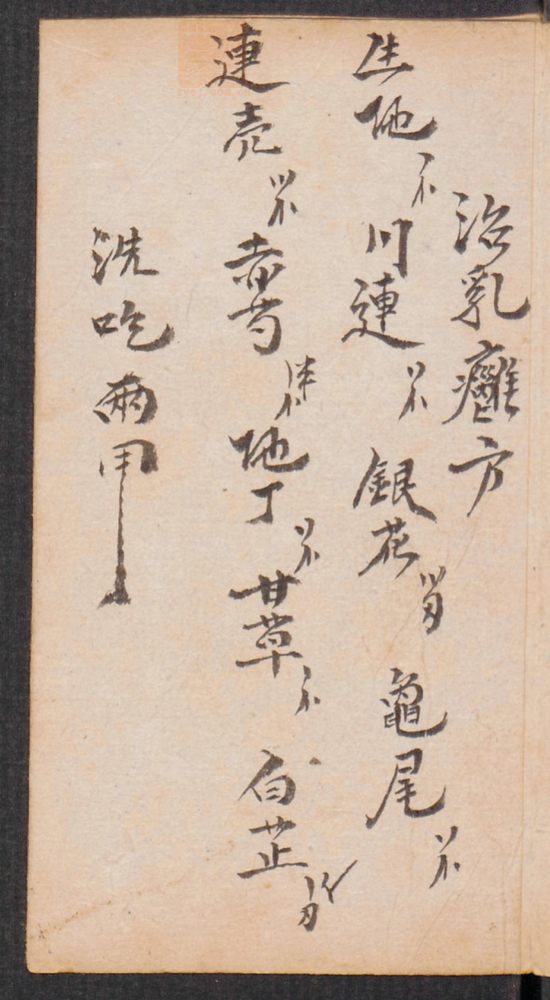 治乳癰方
生地 川連 銀花 龜尾
連壳 赤芍 地丁 甘草 白芷
洗吃兩用